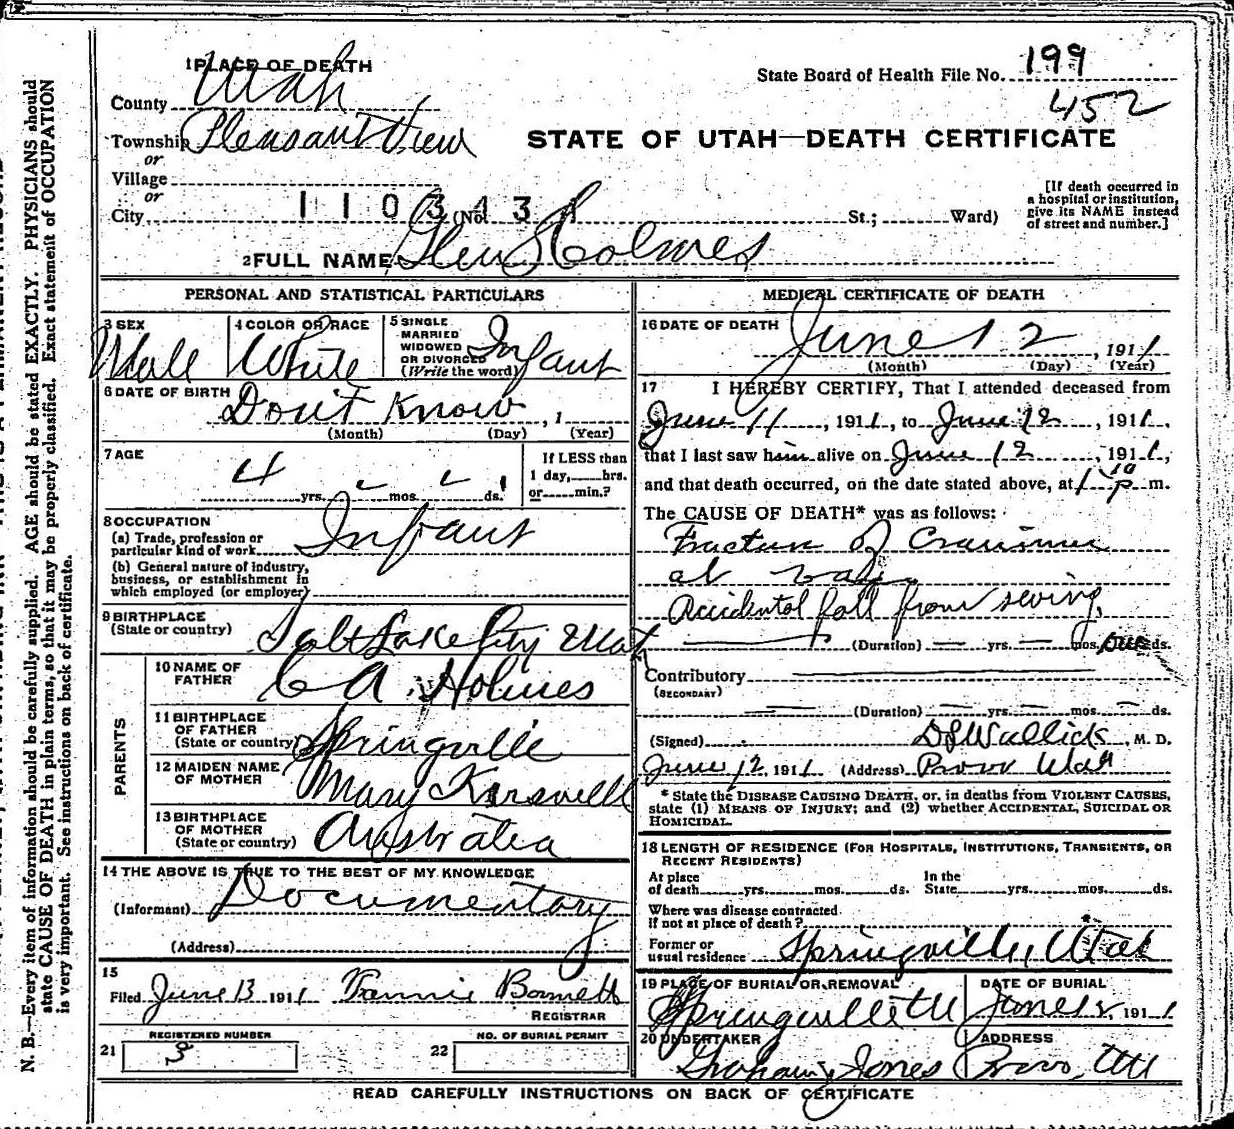 1 PLACE OF DEATH
State Board of Health File No. 199
452
County Utah
Township Pleasant View
or
Village
or
City
STATE OF UTAH—DEATH CERTIFICATE
(No. St.; Ward)
[If death occurred in
a hospital or institution,
give its NAME instead
of street and number.]
2 FULL NAME Glen Holmes
PERSONAL AND STATISTICAL PARTICULARS
3 SEX
Male
4 COLOR OR RACE
White
5 SINGLE
MARRIED
WIDOWED
OR DIVORCED
(Write the word) Infant
6 DATE OF BIRTH
Don't Know, 1
(Month) (Day) (Year)
7 AGE
4 yrs. mos. ds.
If LESS than
1 day, hrs.
or min.?
8 OCCUPATION
(a) Trade, profession or
particular kind of work Infant
(b) General nature of industry,
business, or establishment in
which employed (or employer)
9 BIRTHPLACE
(State or country) Salt Lake City Utah
PARENTS
10 NAME OF
FATHER C A Holmes
11 BIRTHPLACE
OF FATHER
(State or country) Springville
12 MAIDEN NAME
OF MOTHER Mary
13 BIRTHPLACE
OF MOTHER
(State or country) Australia
14 THE ABOVE IS TRUE TO THE BEST OF MY KNOWLEDGE
(Informant) Documentary
(Address)
15
Filed June 13 1911 Fannie
REGISTRAR
21 REGISTERED NUMBER
3
22 NO. OF BURIAL PERMIT
MEDICAL CERTIFICATE OF DEATH
16 DATE OF DEATH
June 12, 1911
(Month) (Day) (Year)
17 I HEREBY CERTIFY, That I attended deceased from
June 11, 1911, to June 12, 1911,
that I last saw him alive on June 12, 1911,
and that death occurred, on the date stated above, at 1 10 p m.
The CAUSE OF DEATH* was as follows:
Fracture of Cranium
at
Accidental fall from swing,
(Duration) yrs. mos. ds.
Contributory
(SECONDARY)
(Duration) yrs. mos. ds.
(Signed) Wallick, M. D.
June 12, 1911 (Address) Provo Utah
* State the DISEASE CAUSING DEATH, or, in deaths from VIOLENT CAUSES,
state (1) MEANS OF INJURY; and (2) whether ACCIDENTAL, SUICIDAL OR
HOMICIDAL.
18 LENGTH OF RESIDENCE (FOR HOSPITALS, INSTITUTIONS, TRANSIENTS, OR
RECENT RESIDENTS)
At place
of death yrs. mos. ds.
In the
State yrs. mos. ds.
Where was disease contracted
if not at place of death?
Former or
usual residence Springville, Utah
19 PLACE OF BURIAL OR REMOVAL
Springville Ut
DATE OF BURIAL
June 12, 1911
20 UNDERTAKER
Jones
ADDRESS
Provo, Ut
READ CAREFULLY INSTRUCTIONS ON BACK OF CERTIFICATE
N. B.—Every item of information should be carefully supplied. AGE should be stated EXACTLY. PHYSICIANS should
state CAUSE OF DEATH in plain terms, so that it may be properly classified. Exact statement of OCCUPATION
is very important. See instructions on back of certificate.